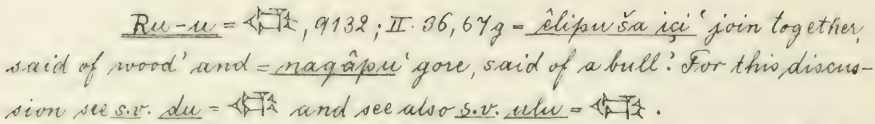 Ru-u = 𒌌, 9132; II. 36, 67g = êlipu ša içi ‘join together,
said of wood’ and = nagâpu ‘gore, said of a bull’. For this discus-
sion see s.v. du = 𒌌 and see also s.v. ulu = 𒌌.